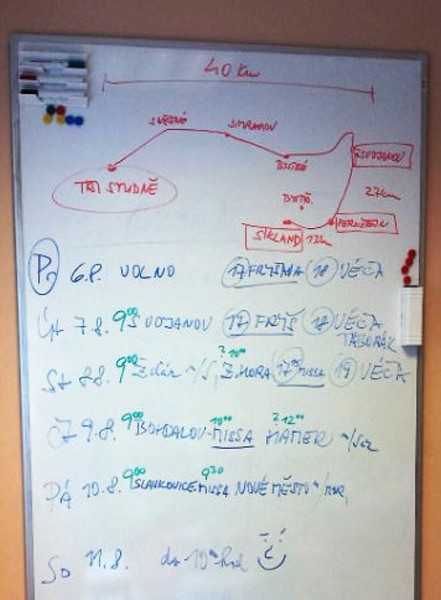 40 km
SVRATOUCH
TŘI STUDNĚ
BYSTRÉ
SVOJANOV
27km
BYSTŘ.
PERNŠTEJN
ŠIKLAND 12km
Po 6.8. VOLNO 17 FRYŠAVA 18 VEČ.
ÚT 7.8. 9⁰⁰ SVOJANOV 17 FRYŠ 18 VEČ. TÁBORÁK
ST 8.8. 9⁰⁰ Ždár n/S, Z.HORA 17 missa 19 VEČ.
ČT 9.8. 9⁰⁰ BOHDALOV-MISSA 10⁰⁰ HAMER n/Sáz ? 12⁰⁰
PÁ 10.8. 9⁰⁰ SLAVKOVICE MISSA 9³⁰ NOVÉ MĚSTO n/MOR,
SO 11.8. do 10⁰⁰ hod